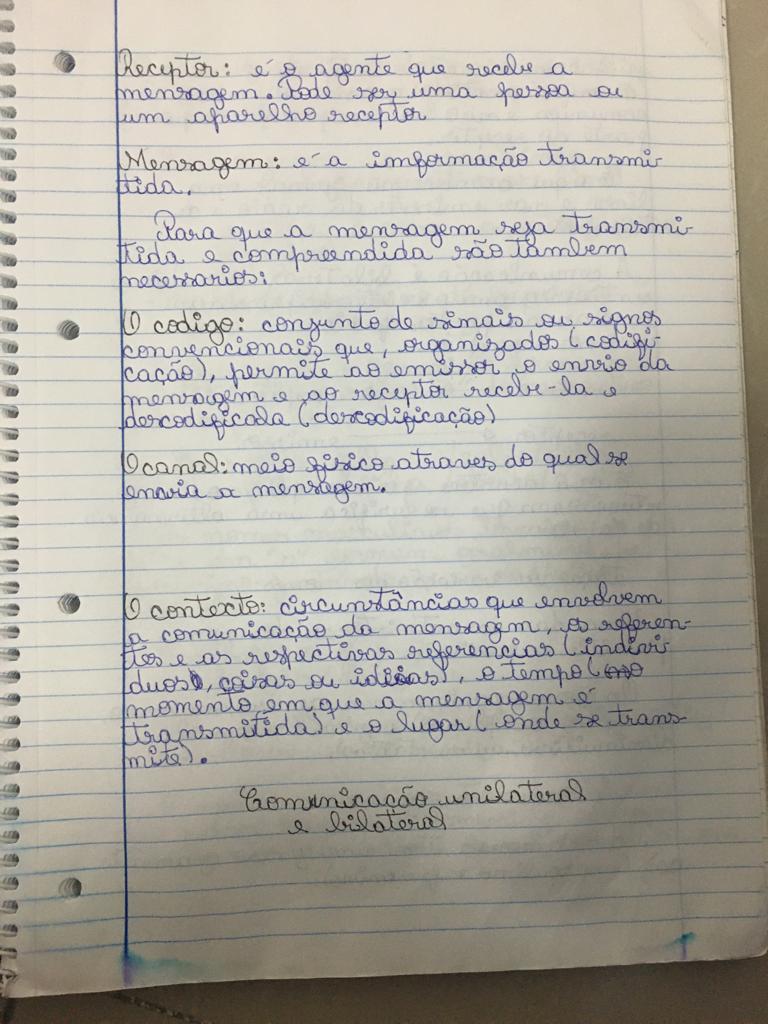 Receptor: é o agente que recebe a
mensagem. Pode ser uma pessoa ou
um aparelho receptor
Mensagem: é a imformação transmi-
tida.
Para que a mensagem seja transmi-
tida e compreendida são tambem
necessarios:
O codigo: conjunto de sinais ou signos
convencionais que, organizados (codifi-
cação), permite ao emissor o envio da
mensagem e ao receptor recebe-la e
descodificada (descodificação)
O canal: meio fisico atraves do qual se
envia a mensagem.
O contexto: circunstâncias que envolvem
a comunicação da mensagem, os referen-
tes e as respectivas referencias (indivi-
duos, coisas ou idéias), o tempo (
momento em que a mensagem é
transmitida) e o lugar (onde se trans-
mite).
Comunicação unilateral
e bilateral